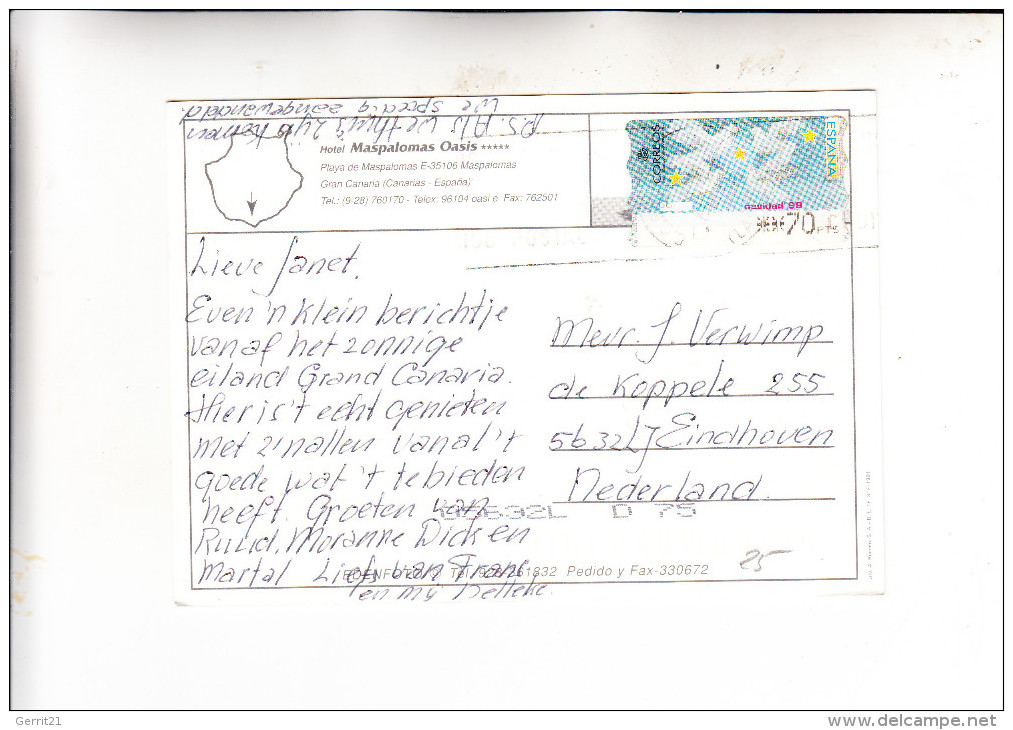 P.S. Als we thuis zijn komen
we spoedig aangewandeld.
Hotel Maspalomas Oasis *****
Playa de Maspalomas E-35106 Maspalomas
Gran Canaria (Canarias - España)
Tel.: (9-28) 760170 - Telex: 96104 oasi e Fax: 762501
CORREOS
ESPAÑA
70 PTS
Lieve Janet.
Even 'n klein berichtje
vanaf het zonnige
eiland Grand Canaria.
Hier is 't echt genieten
met z'n allen van al 't
goede wat 't te bieden
heeft. Groeten van
Ruud, Dick en
Liefs van Frans
en mij
Mevr. J. Verwimp
de Koppele 255
5632LJ Eindhoven
Nederland.
5632L D 75
Pedido y Fax-330672
25
Gerrit21
www.delcampe.net